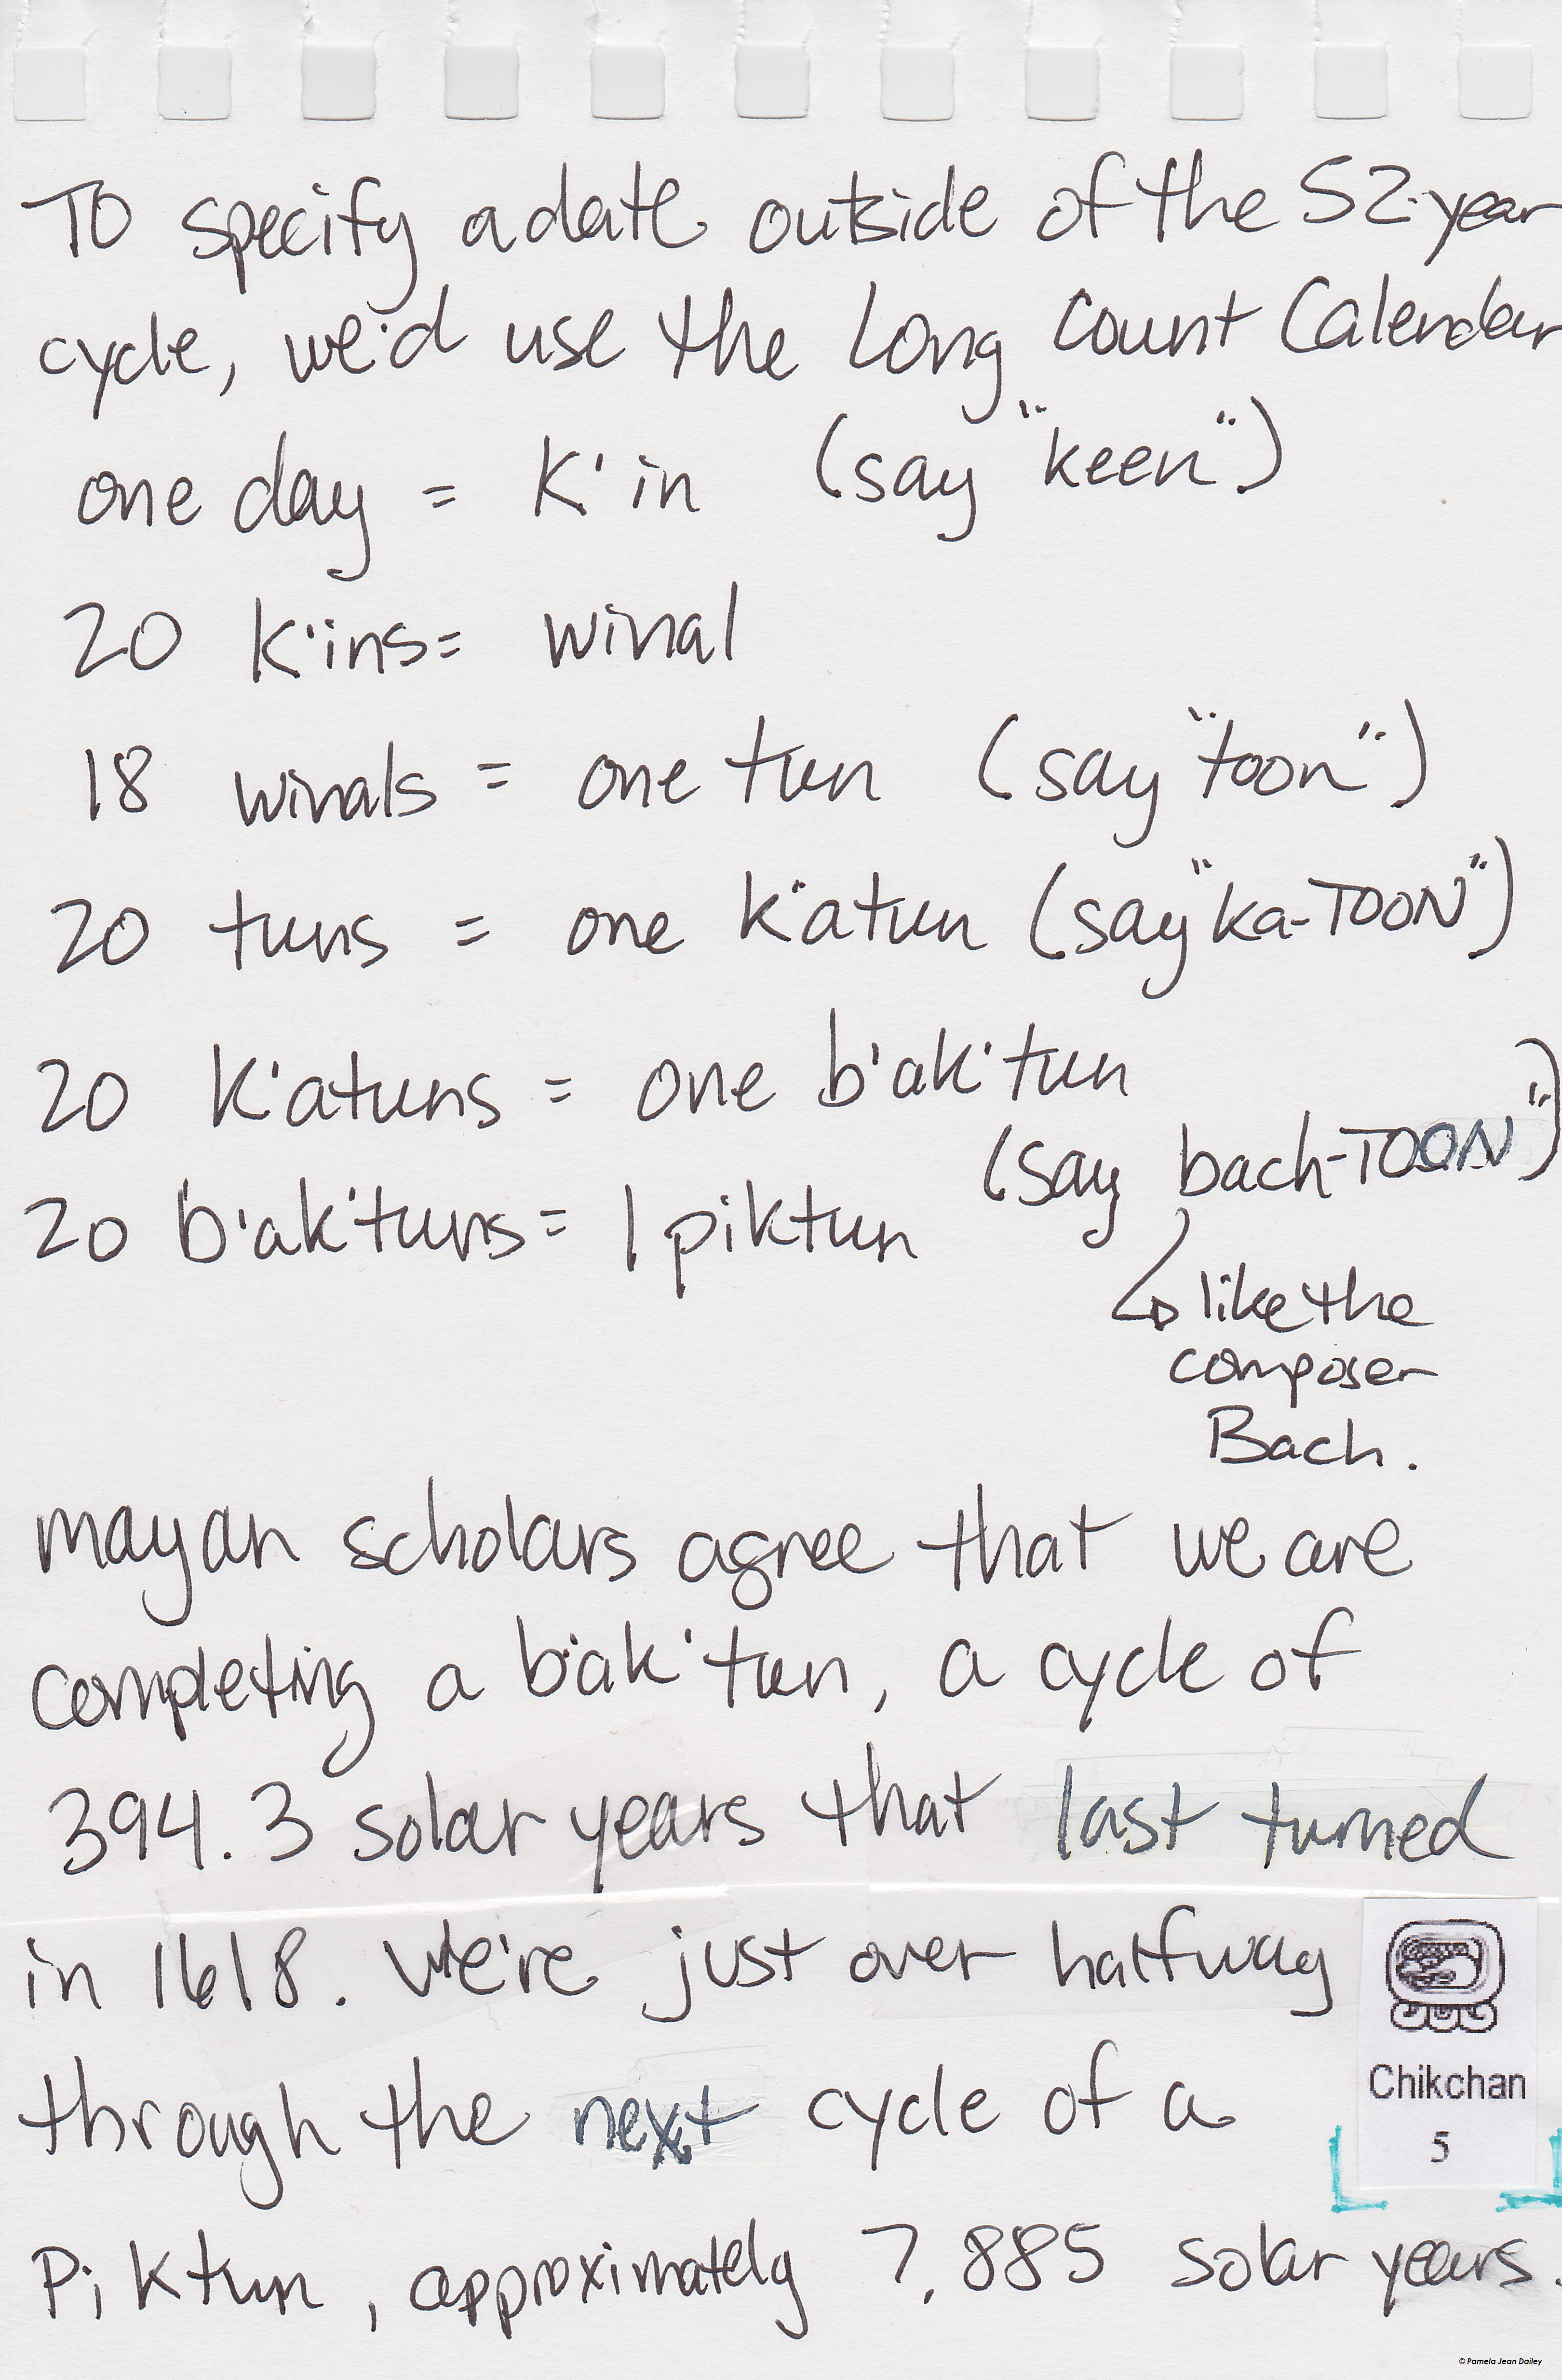 To specify a date outside of the 52-year
cycle, we'd use the Long Count Calendar
one day = K'in (say "keen")
20 K'ins = winal
18 winals = one tun (say "toon")
20 tuns = one k'atun (say "ka-TOON")
20 K'atuns = one b'ak'tun
(say bach-TOON")
20 b'ak'tuns = 1 piktun
like the
composer
Bach.
mayan scholars agree that we are
completing a b'ak'tun, a cycle of
394.3 solar years that last turned
in 1618. We're just over halfway
through the next cycle of a
Piktun, approximately 7,885 solar years.
Chikchan
5
© Pamela Jean Dailey